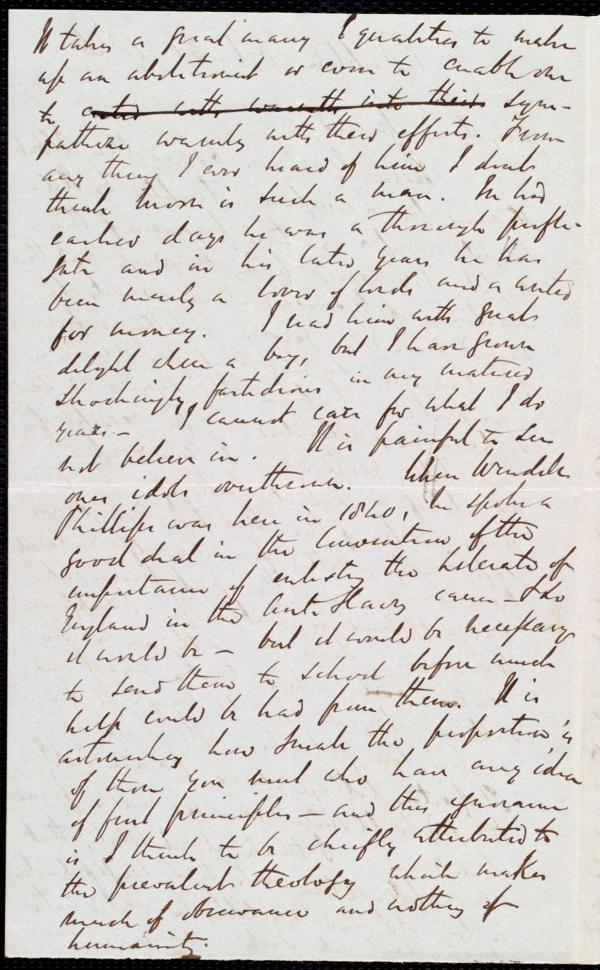 It takes a great many qualities to make
up an abolitionist or even to enable one
to entered with warmth into their sym-
pathize warmly with their efforts. From
any thing I ever heard of him I don't
think Moore is such a man. In his
earlier days he was a thorough profli-
gate and in his later years he has
been merely a lover of lords and a writer
for money. I read him with great
delight when a boy, but I have grown
shockingly fastidious in my matured
years – I cannot care for what I do
not believe in. It is painful to see
ones idols overthrown. When Wendell
Phillips was here in 1840, he spoke a
good deal in the Convention of the
importance of enlisting the literati of
England in the Anti Slavery cause – & so
it would be – but it would be necessary
to send them to school before much
help could be had from them. It is
astonishing how small the proportion is
of those you meet who have any idea
of first principles – and this ignorance
is I think to be chiefly attributed to
the prevalent theology which makes
much of observance and nothing of
humanity.